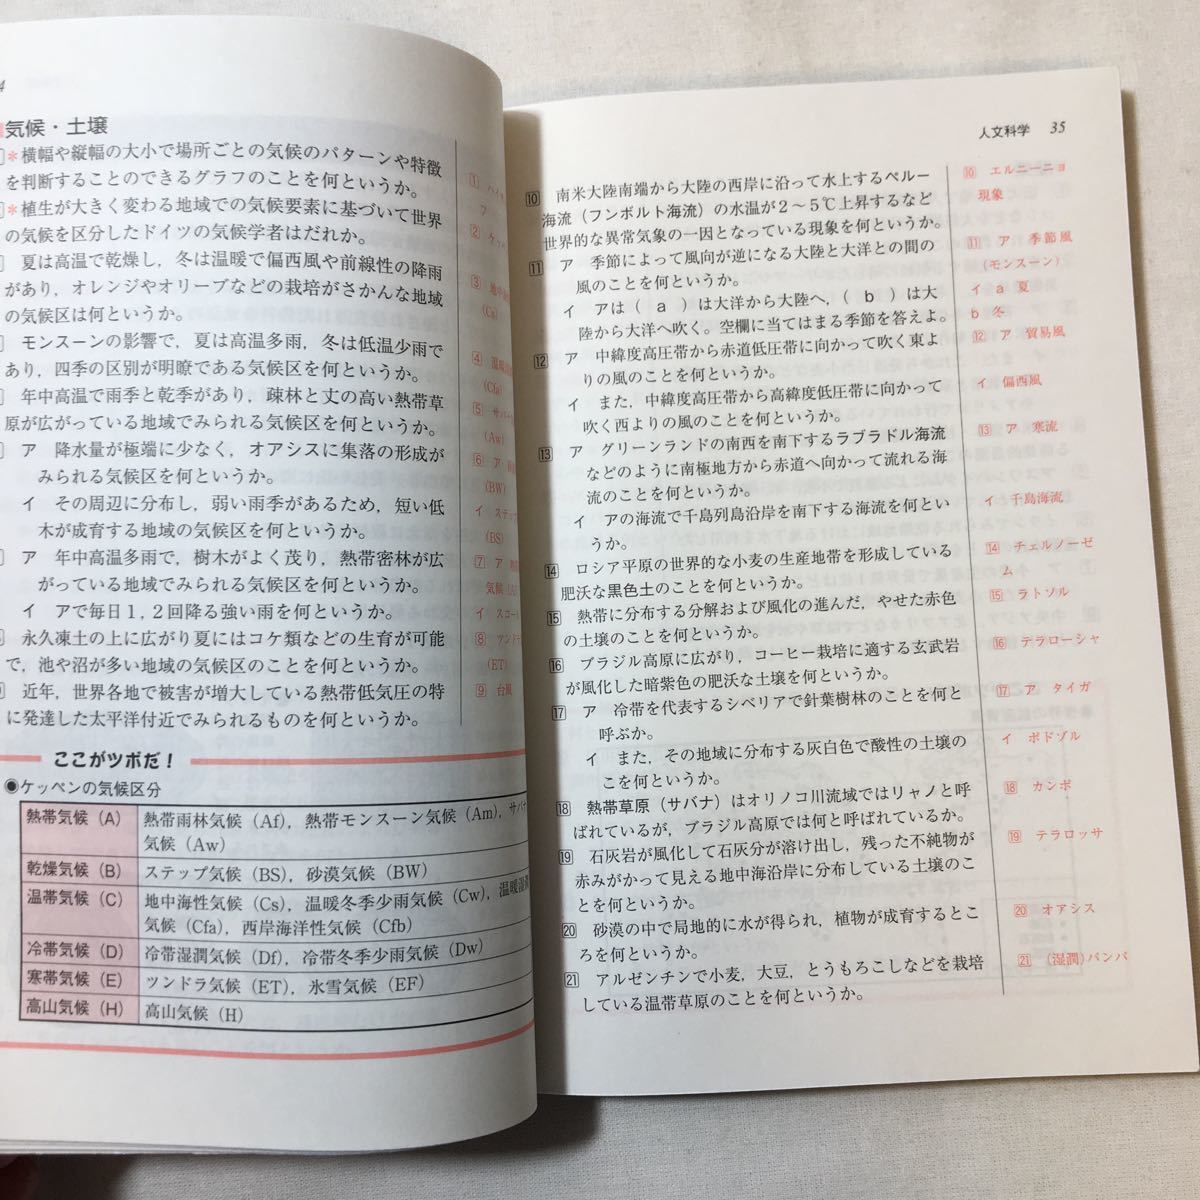 4
気候・土壌
＊横幅や縦幅の大小で場所ごとの気候のパターンや特徴
を判断することのできるグラフのことを何というか。
＊植生が大きく変わる地域での気候要素に基づいて世界
の気候を区分したドイツの気候学者はだれか。
夏は高温で乾燥し，冬は温暖で偏西風や前線性の降雨
があり，オレンジやオリーブなどの栽培がさかんな地域
の気候区は何というか。
モンスーンの影響で，夏は高温多雨，冬は低温少雨で
あり，四季の区別が明瞭である気候区を何というか。
年中高温で雨季と乾季があり，疎林と丈の高い熱帯草
原が広がっている地域でみられる気候区を何というか。
ア 降水量が極端に少なく，オアシスに集落の形成が
みられる気候区を何というか。
イ その周辺に分布し，弱い雨季があるため，短い低
木が成育する地域の気候区を何というか。
ア 年中高温多雨で，樹木がよく茂り，熱帯密林が広
がっている地域でみられる気候区を何というか。
イ アで毎日1，2回降る強い雨を何というか。
永久凍土の上に広がり夏にはコケ類などの生育が可能
で，池や沼が多い地域の気候区のことを何というか。
近年，世界各地で被害が増大している熱帯低気圧の特
に発達した太平洋付近でみられるものを何というか。
1 ハイ
フ
2 ケッ
3 地中
(Cs)
4 温
(Cfa)
5 サバ
(Aw)
6 ア
(BW)
イ ステッ
(BS)
7 ア
気候
イ スコー
8 ツンド
(ET)
9 台風
ここがツボだ！
●ケッペンの気候区分
熱帯気候（A） 熱帯雨林気候（Af），熱帯モンスーン気候（Am），サバナ
気候（Aw）
乾燥気候（B） ステップ気候（BS），砂漠気候（BW）
温帯気候（C） 地中海性気候（Cs），温暖冬季少雨気候（Cw），温暖湿潤
気候（Cfa），西岸海洋性気候（Cfb）
冷帯気候（D） 冷帯湿潤気候（Df），冷帯冬季少雨気候（Dw）
寒帯気候（E） ツンドラ気候（ET），氷雪気候（EF）
高山気候（H） 高山気候（H）
人文科学 35
10 南米大陸南端から大陸の西岸に沿って水上するペルー
海流（フンボルト海流）の水温が2～5℃上昇するなど
世界的な異常気象の一因となっている現象を何というか。
11 ア 季節によって風向が逆になる大陸と大洋との間の
風のことを何というか。
イ アは（ a ）は大洋から大陸へ，（ b ）は大
陸から大洋へ吹く。空欄に当てはまる季節を答えよ。
12 ア 中緯度高圧帯から赤道低圧帯に向かって吹く東よ
りの風のことを何というか。
イ また，中緯度高圧帯から高緯度低圧帯に向かって
吹く西よりの風のことを何というか。
13 ア グリーンランドの南西を南下するラブラドル海流
などのように南極地方から赤道へ向かって流れる海
流のことを何というか。
イ アの海流で千島列島沿岸を南下する海流を何とい
うか。
14 ロシア平原の世界的な小麦の生産地帯を形成している
肥沃な黒色土のことを何というか。
15 熱帯に分布する分解および風化の進んだ，やせた赤色
の土壌のことを何というか。
16 ブラジル高原に広がり，コーヒー栽培に適する玄武岩
が風化した暗紫色の肥沃な土壌を何というか。
17 ア 冷帯を代表するシベリアで針葉樹林のことを何と
呼ぶか。
イ また，その地域に分布する灰白色で酸性の土壌の
ことを何というか。
18 熱帯草原（サバナ）はオリノコ川流域ではリャノと呼
ばれているが，ブラジル高原では何と呼ばれているか。
19 石灰岩が風化して石灰分が溶け出し，残った不純物が
赤みがかって見える地中海沿岸に分布している土壌のこ
とを何というか。
20 砂漠の中で局地的に水が得られ，植物が成育するとこ
ろを何というか。
21 アルゼンチンで小麦，大豆，とうもろこしなどを栽培
している温帯草原のことを何というか。
10 エルニーニョ
現象
11 ア 季節風
（モンスーン）
イ a 夏
b 冬
12 ア 貿易風
イ 偏西風
13 ア 寒流
イ 千島海流
14 チェルノーゼ
ム
15 ラトソル
16 テラローシャ
17 ア タイガ
イ ポドゾル
18 カンポ
19 テラロッサ
20 オアシス
21 （湿潤）パンパ